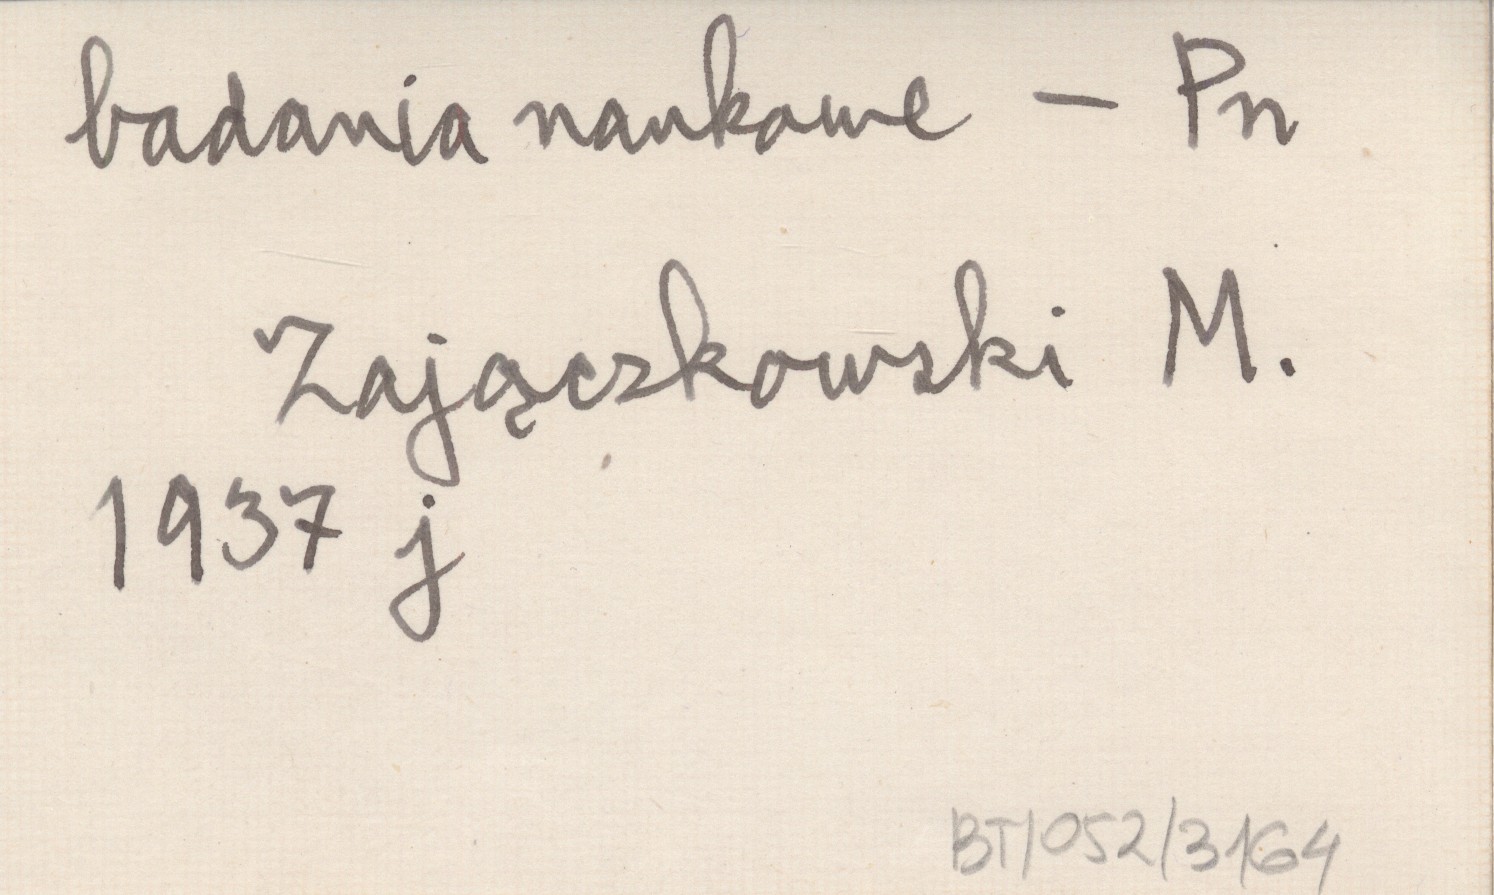 badania naukowe — Pn
Zajączkowski M.
1937 j
BT/052/3164